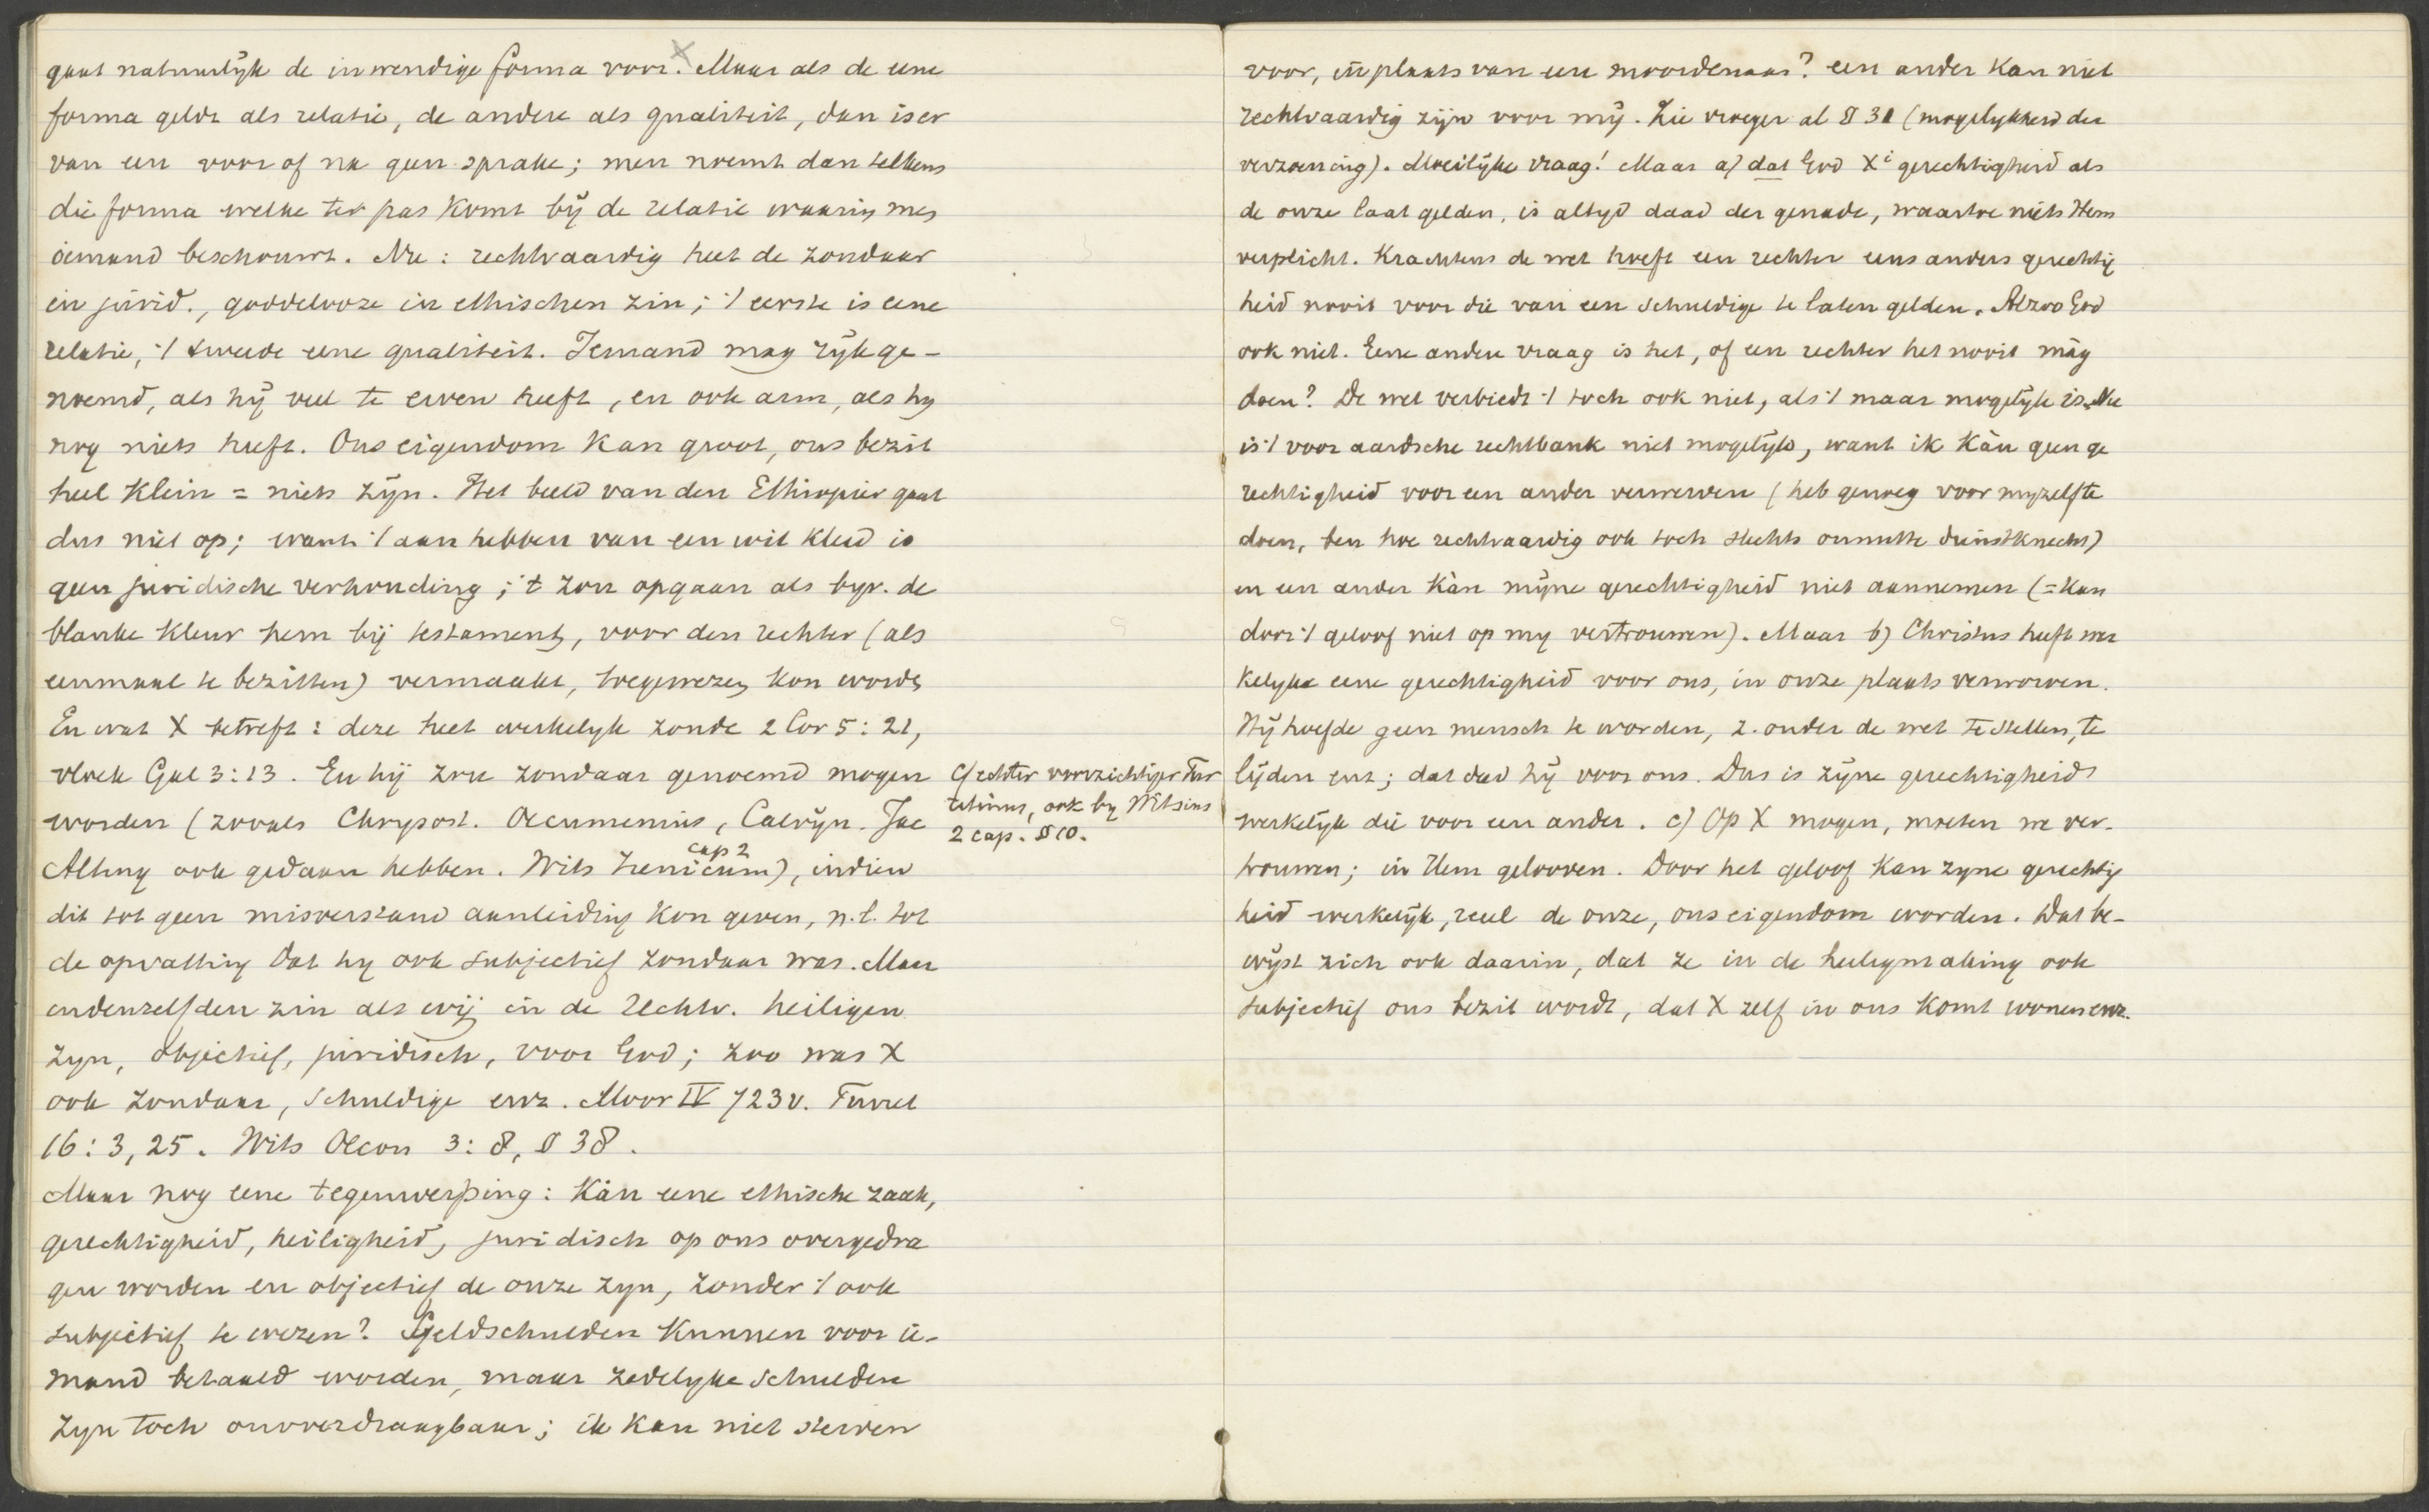 gaat natuurlijk de inwendige forma voor. x Maar als de eene
forma geldt als relatie, de andere als qualiteit, dan is er
van een voor of na geen sprake; men noemt dan telkens
die forma welke ter pas komt bij de relatie waarin men
iemand beschouwt. Nu: rechtvaardig heet de zondaar
in jurid., goddelooze in ethischen zin; 't eerste is eene
relatie, 't tweede eene qualiteit. Iemand mag rijk ge-
noemd, als hij veel te erven heeft, en ook arm, als hy
nog niets heeft. Ons eigendom kan groot, ons bezit
heel klein = niets zijn. Het beeld van den Ethiopier gaat
dus niet op; want 't aan hebben van een wit kleed is
geen juridische verhouding; 't zou opgaan als byv. de
blanke kleur hem bij testament, voor den rechter (als
eenmaal te bezitten) vermaakt, toegewezen kon worden
En wat X betreft: deze heet werkelyk zonde 2 Cor 5:21,
vloek Gal 3:13. En hij zou zondaar genoemd mogen
worden (zooals Chrysost. Oecumenius, Calvijn. Jac
Alting ook gedaan hebben. Wits Irenicum cap 2), indien
dit tot geen misverstand aanleiding kon geven, n.l. tot
de opvatting dat hy ook subjectief zondaar was. Maar
in denzelfden zin als wij in de rechtv. heiligen
zyn, objectief, juridisch, voor God; zoo was X
ook zondaar, schuldige enz. Moor IV 723v. Turret
16:3,25. Wits Oecon 3:8, § 38.
Maar nog eene tegenwerping: Kàn eene ethische zaak,
gerechtigheid, heiligheid, juridisch op ons overgedra
gen worden en objectief de onze zyn, zonder 't ook
subjectief te wezen? Geldschulden kunnen voor ie-
mand betaald worden, maar zedelyke schulden
zyn toch onoverdraagbaar; ik kan niet sterven
c/ echter voorzichtiger Tur
retinus, ook by Witsius
2 cap. § 10.
voor, in plaats van een moordenaar? een ander kan niet
rechtvaardig zijn voor mij. Zie vroeger al § 31 (mogelykheid der
verzoening). Moeilijke vraag! Maar a) dat God Xi gerechtigheid als
de onze laat gelden, is altyd daad der genade, waartoe niets Hem
verplicht. Krachtens de wet hoeft een rechter eens anders gerechtig
heid nooit voor die van een schuldige te laten gelden. Alzoo God
ook niet. Eene andere vraag is het, of een rechter het nooit mág
doen? De wet verbiedt 't toch ook niet, als 't maar mogelijk is. Nu
is 't voor aardsche rechtbank niet mogelijk, want ik kàn geen ge
rechtigheid voor een ander verwerven (heb genoeg voor myzelf te
doen, ben hoe rechtvaardig ook toch slechts onnutte dienstknecht)
en een ander kàn mijne gerechtigheid niet aannemen (= kan
door 't geloof niet op my vertrouwen). Maar b) Christus heeft wer
kelyke eene gerechtigheid voor ons, in onze plaats verworven.
Hij hoefde geen mensch te worden, z. onder de wet te stellen, te
lijden enz; dat deed hij voor ons. Dus is zijne gerechtigheid
werkelijk die voor een ander. c) Op X mogen, moeten we ver-
trouwen; in Hem gelooven. Door het geloof kan zyne gerechtig
heid werkelijk, reëel de onze, ons eigendom worden. Dat be-
wijst zich ook daarin, dat ze in de heiligmaking ook
subjectief ons bezit wordt, dat X zelf in ons komt wonen enz.